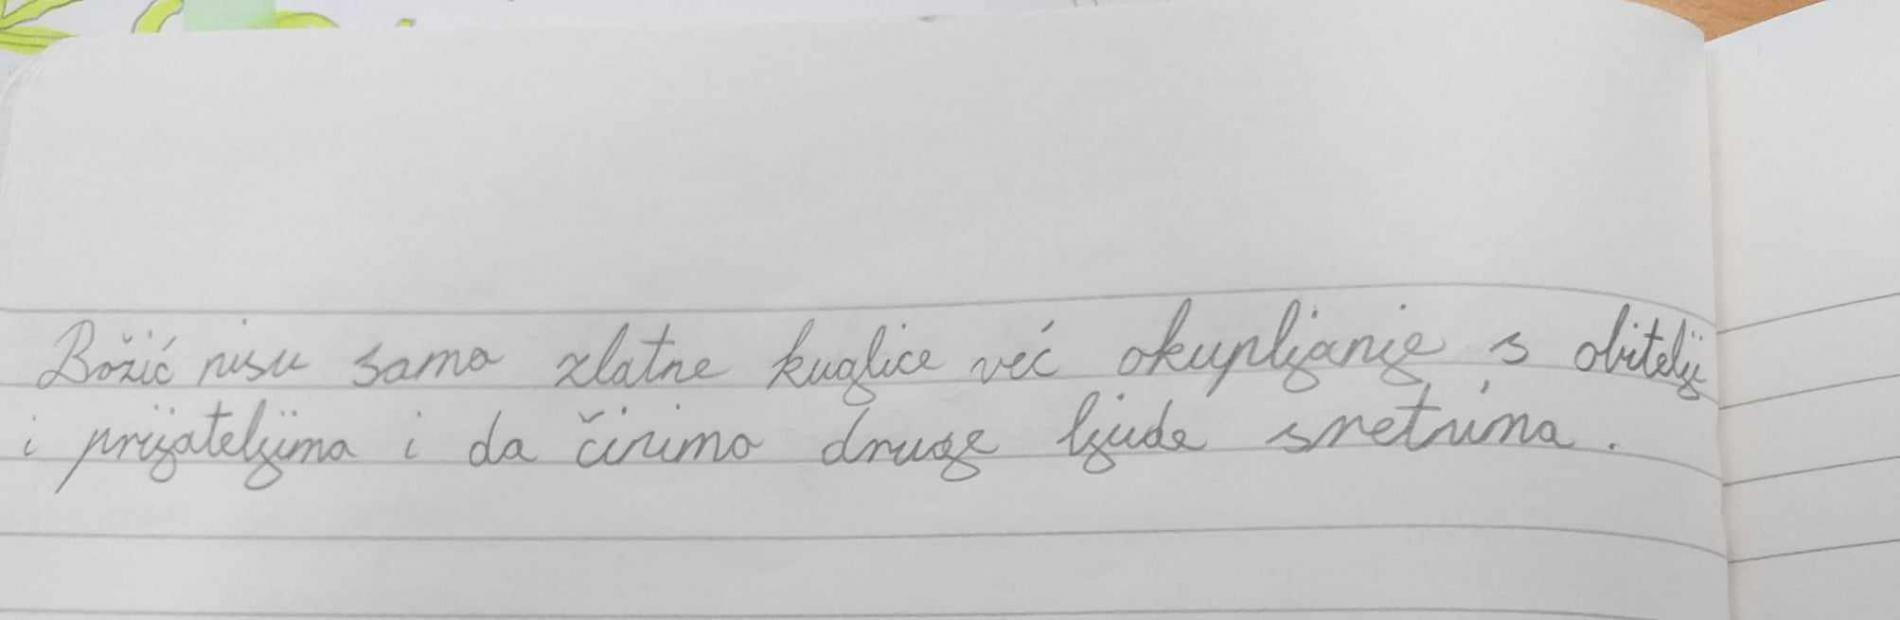 Božić nisu samo zlatne kuglice već okupljanje s obitelji
i prijateljima i da činimo druge ljude sretnima.